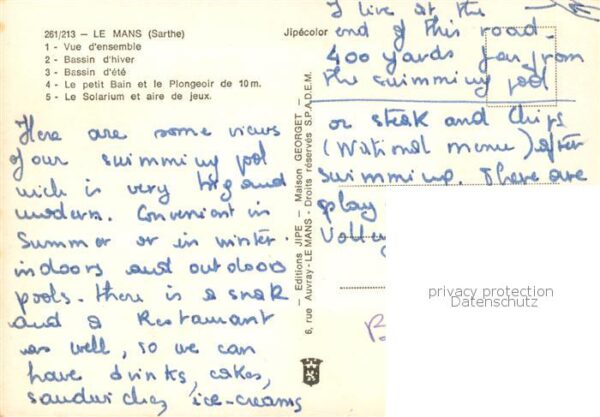 261/213 – LE MANS (Sarthe)
1 - Vue d'ensemble
2 - Bassin d'hiver
3 - Bassin d'été
4 - Le petit Bain et le Plongeoir de 10 m.
5 - Le Solarium et aire de jeux.
Jipécolor
Here are some views
of our swimming pool
wich is very big and
modern. Convenient in
Summer or in winter.
indoors and outdoors
pools. there is a snak
and a Restaurant
as well, so we can
have drinks, cakes,
sandwiches, ice-creams
or steak and Chips
(National menu) after
swimming. There are
play
Volley
I live at the
end of this road.
400 yards far from
the swimming pool
— Editions JIPE — Maison GEORGET —
6, rue Auvray - LE MANS - Droits réservés S.P.A.D.E.M.
privacy protection
Datenschutz